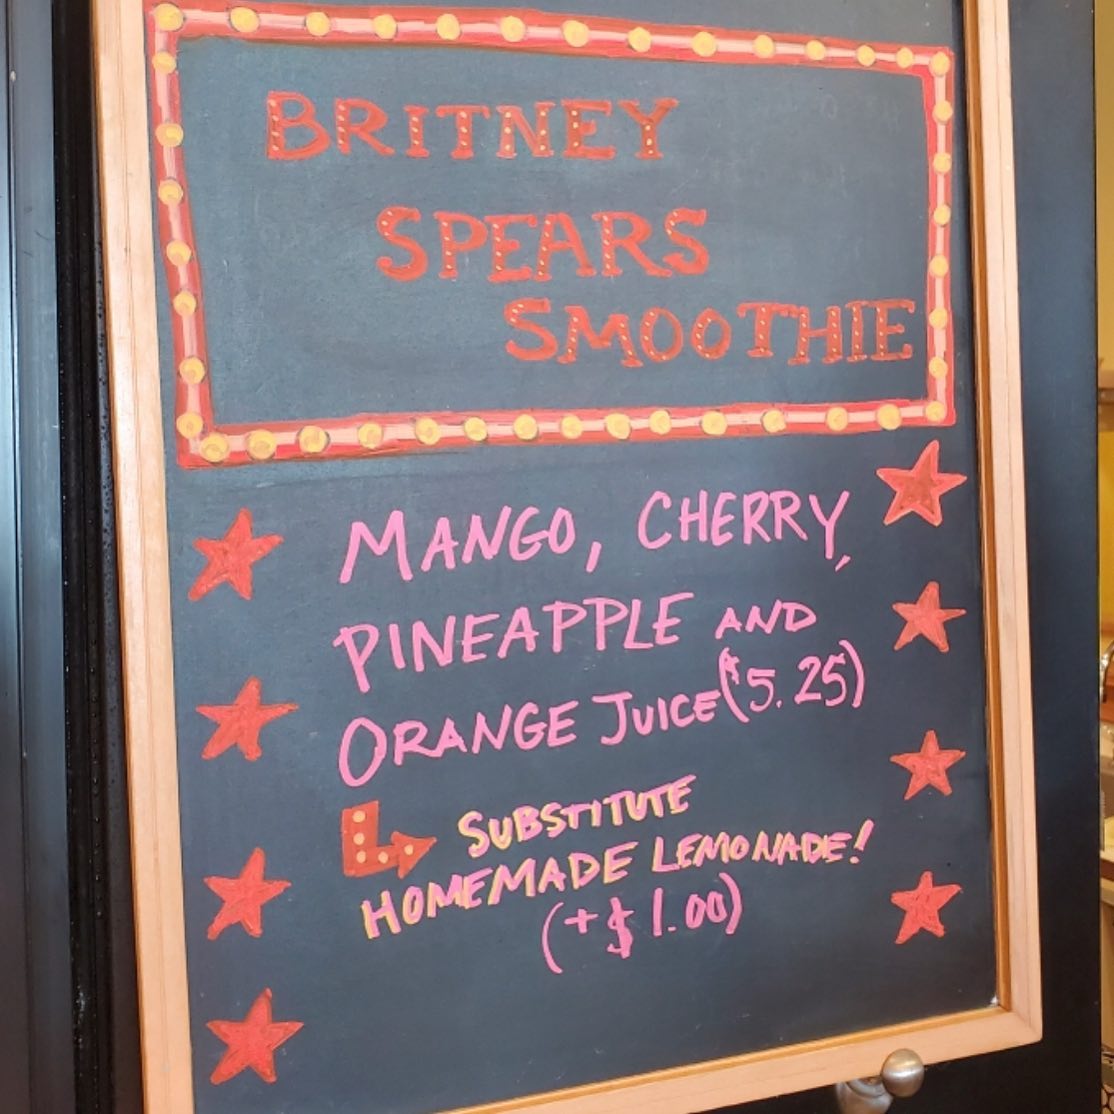 BRITNEY
SPEARS
SMOOTHIE
MANGO, CHERRY,
PINEAPPLE AND
ORANGE JUICE ($5.25)
SUBSTITUTE
HOMEMADE LEMONADE!
(+$1.00)